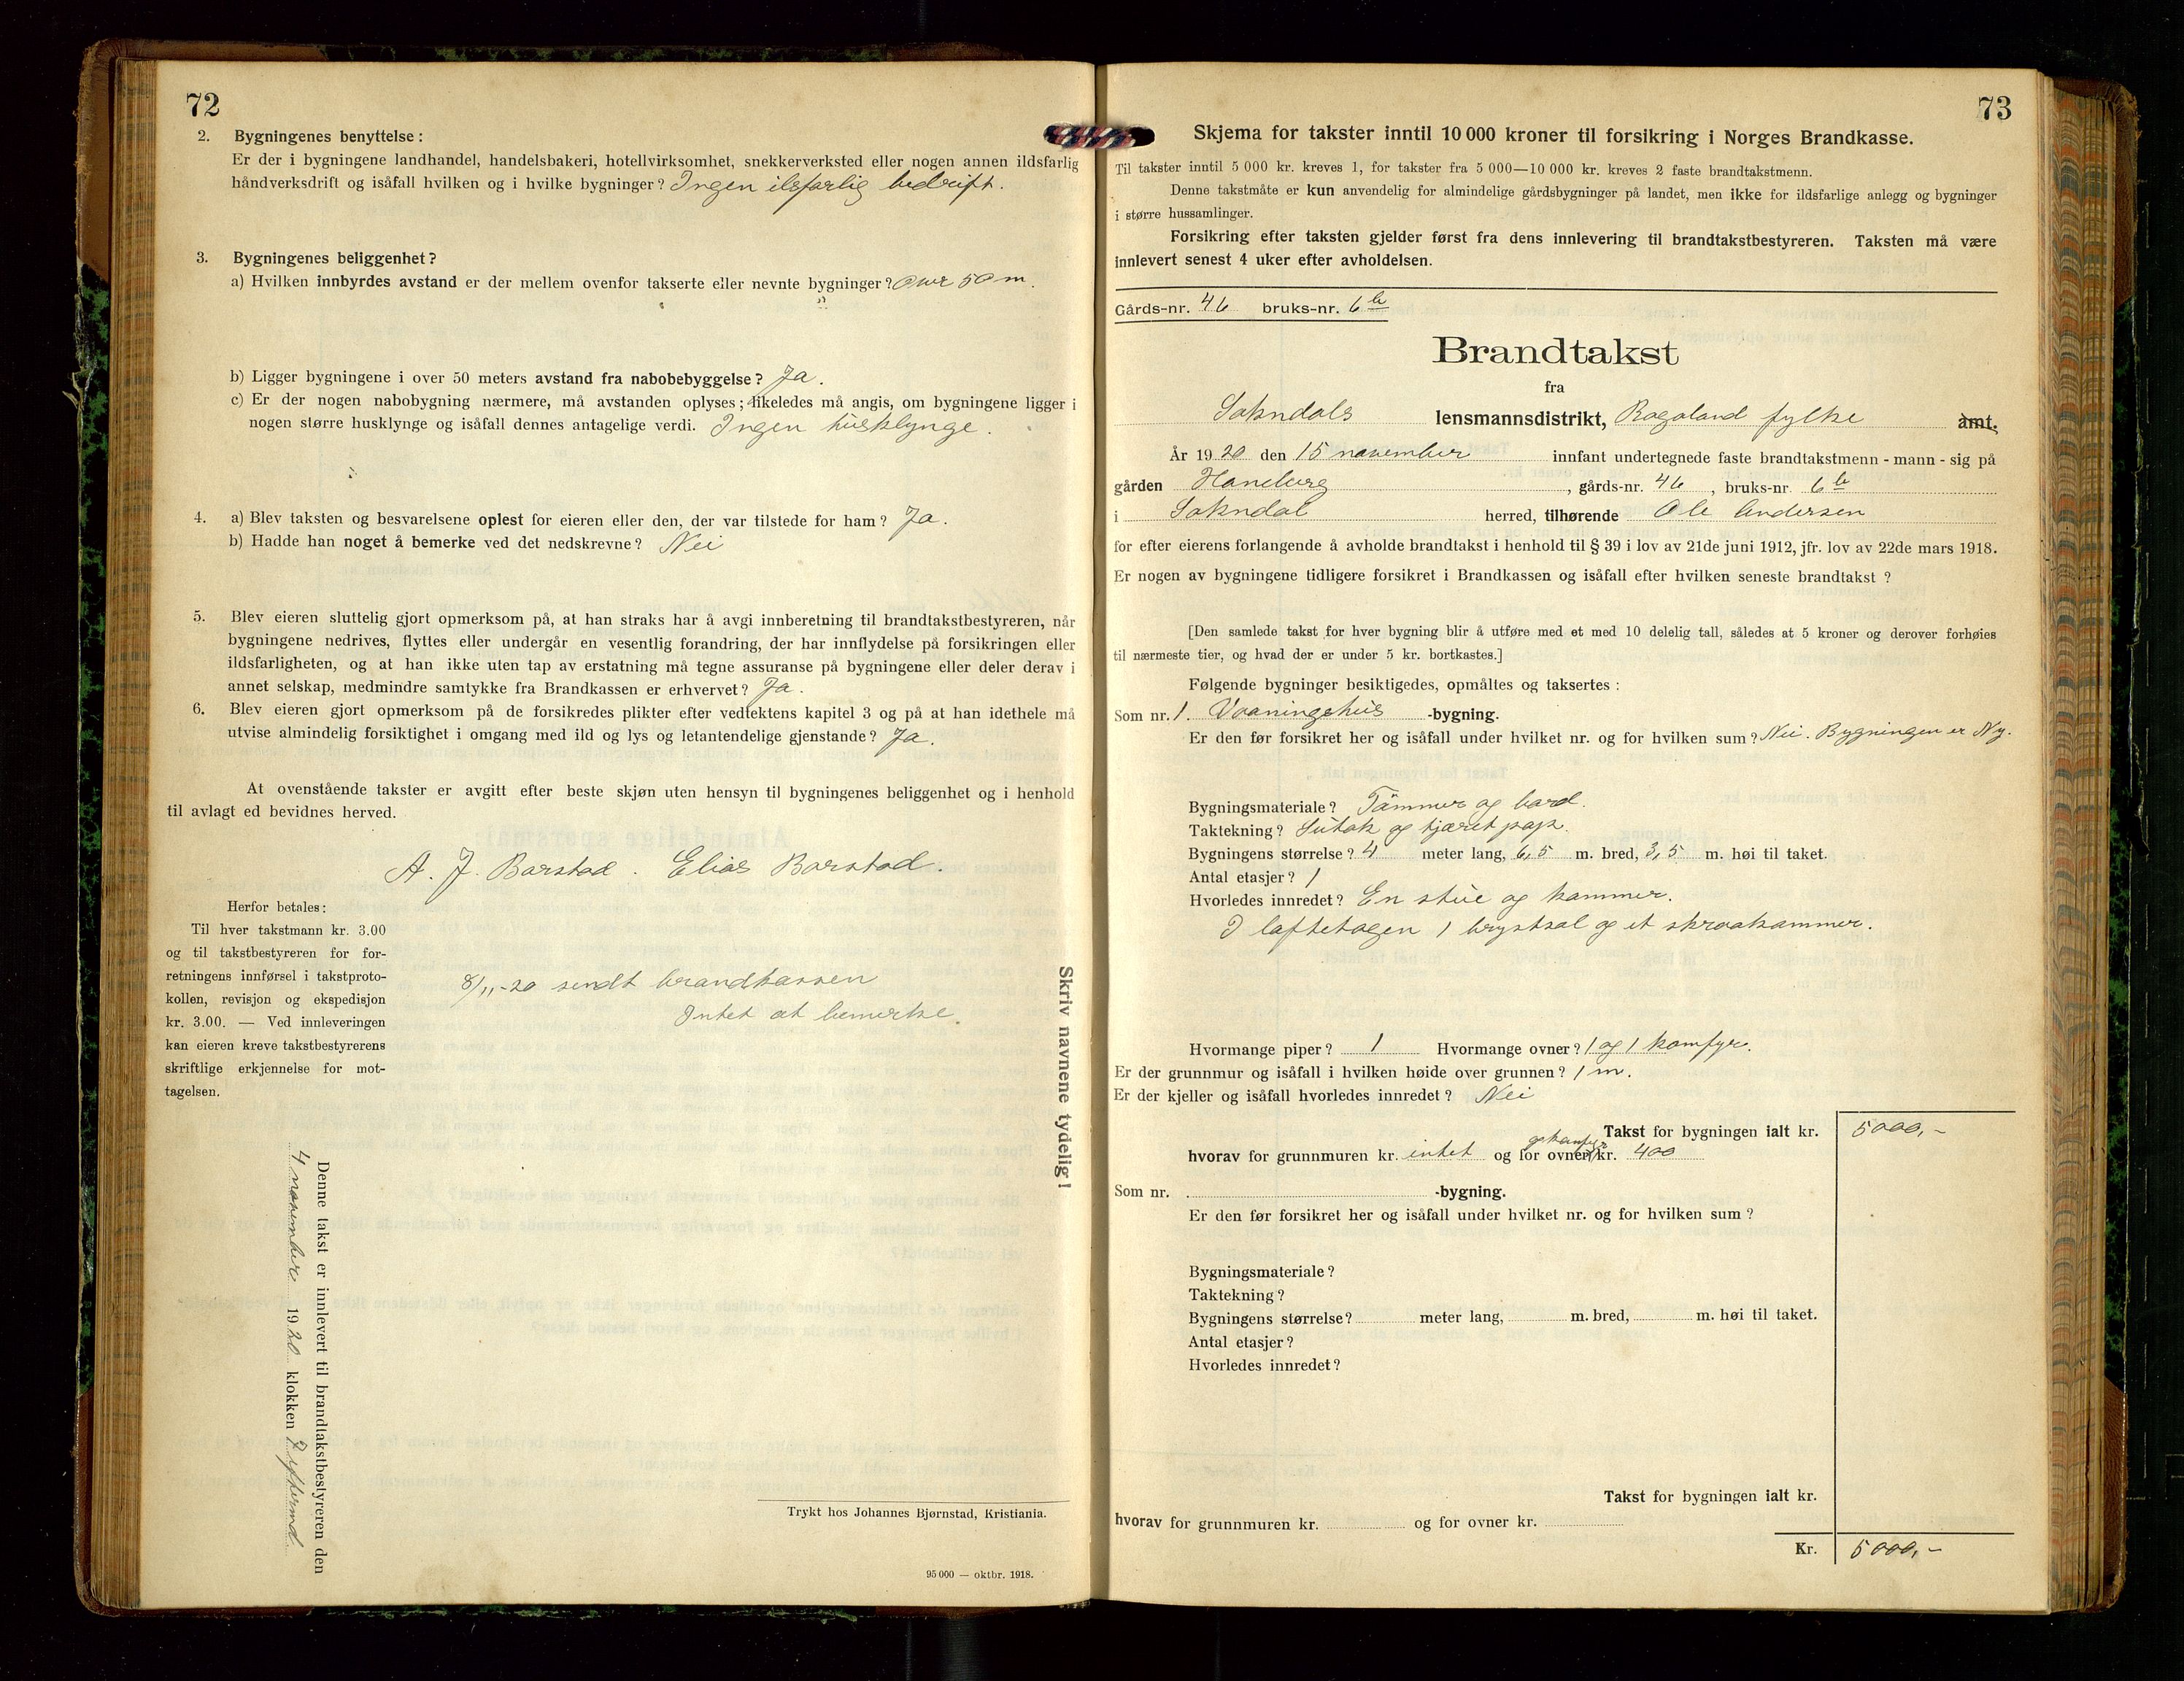 72
2. Bygningenes benyttelse:
Er der i bygningene landhandel, handelsbakeri, hotellvirksomhet, snekkerverksted eller nogen annen ildsfarlig
håndverksdrift og isåfall hvilken og i hvilke bygninger? Ingen ilsfarlig bedrift.
3. Bygningenes beliggenhet?
a) Hvilken innbyrdes avstand er der mellem ovenfor takserte eller nevnte bygninger? Over 50 m.
b) Ligger bygningene i over 50 meters avstand fra nabobebyggelse? Ja.
c) Er der nogen nabobygning nærmere, må avstanden oplyses; likeledes må angis, om bygningene ligger i
nogen større husklynge og isåfall dennes antagelige verdi. Ingen husklynge.
4. a) Blev taksten og besvarelsene oplest for eieren eller den, der var tilstede for ham? Ja.
b) Hadde han noget å bemerke ved det nedskrevne? Nei
5. Blev eieren sluttelig gjort opmerksom på, at han straks har å avgi innberetning til brandtakstbestyreren, når
bygningene nedrives, flyttes eller undergår en vesentlig forandring, der har innflydelse på forsikringen eller
ildsfarligheten, og at han ikke uten tap av erstatning må tegne assuranse på bygningene eller deler derav i
annet selskap, medmindre samtykke fra Brandkassen er erhvervet? Ja.
6. Blev eieren gjort opmerksom på de forsikredes plikter efter vedtektens kapitel 3 og på at han idethele må
utvise almindelig forsiktighet i omgang med ild og lys og letantendelige gjenstande? Ja.
At ovenstående takster er avgitt efter beste skjøn uten hensyn til bygningenes beliggenhet og i henhold
til avlagt ed bevidnes herved.
A. J. Barstad. Elias Barstad.
Herfor betales:
Til hver takstmann kr. 3.00
og til takstbestyreren for for-
retningens innførsel i takstproto-
kollen, revisjon og ekspedisjon
kr. 3.00. — Ved innleveringen
kan eieren kreve takstbestyrerens
skriftlige erkjennelse for mot-
tagelsen.
8/11-20 sendt brandkassen
Intet at bemerke.
Skriv navnene tydelig!
Denne takst er innlevert til brandtakstbestyreren den
4 november 1920 klokken eftermd.
Trykt hos Johannes Bjørnstad, Kristiania.
95 000 — oktbr. 1918.
73
Skjema for takster inntil 10 000 kroner til forsikring i Norges Brandkasse.
Til takster inntil 5 000 kr. kreves 1, for takster fra 5 000—10 000 kr. kreves 2 faste brandtakstmenn.
Denne takstmåte er kun anvendelig for almindelige gårdsbygninger på landet, men ikke for ildsfarlige anlegg og bygninger
i større hussamlinger.
Forsikring efter taksten gjelder først fra dens innlevering til brandtakstbestyreren. Taksten må være
innlevert senest 4 uker efter avholdelsen.
Gårds-nr. 46 bruks-nr. 6 b
Brandtakst
fra
Sokndals lensmannsdistrikt, Rogaland fylke amt.
År 1920 den 15 november innfant undertegnede faste brandtakstmenn - mann - sig på
gården Haneberg, gårds-nr. 46, bruks-nr. 6 b
i Sokndal herred, tilhørende Ole Andersen
for efter eierens forlangende å avholde brandtakst i henhold til § 39 i lov av 21de juni 1912, jfr. lov av 22de mars 1918.
Er nogen av bygningene tidligere forsikret i Brandkassen og isåfall efter hvilken seneste brandtakst?
[Den samlede takst for hver bygning blir å utføre med et med 10 delelig tall, således at 5 kroner og derover forhøies
til nærmeste tier, og hvad der er under 5 kr. bortkastes.]
Følgende bygninger besiktigedes, opmåltes og taksertes:
Som nr. 1. Vaaningshus -bygning.
Er den før forsikret her og isåfall under hvilket nr. og for hvilken sum? Nei. Bygningen er Ny.
Bygningsmateriale? Tømmer og bord.
Taktekning? Sutak og tjæret pap.
Bygningens størrelse? 4 meter lang, 6,5 m. bred, 3,5 m. høi til taket.
Antal etasjer? 1
Hvorledes innredet? En stue og kammer.
I loftetagen 1 brystsal og et skraakammer.
Hvormange piper? 1 Hvormange ovner? 1 og 1 komfyr.
Er der grunnmur og isåfall i hvilken høide over grunnen? 1 m.
Er der kjeller og isåfall hvorledes innredet? Nei
Takst for bygningen ialt kr. 5000,-
og komfyr
hvorav for grunnmuren kr. intet og for ovner kr. 400
Som nr. -bygning.
Er den før forsikret her og isåfall under hvilket nr. og for hvilken sum?
Bygningsmateriale?
Taktekning?
Bygningens størrelse? meter lang, m. bred, m. høi til taket.
Antal etasjer?
Hvorledes innredet?
Takst for bygningen ialt kr.
hvorav for grunnmuren kr. og for ovner kr.
Kr. 5000,-